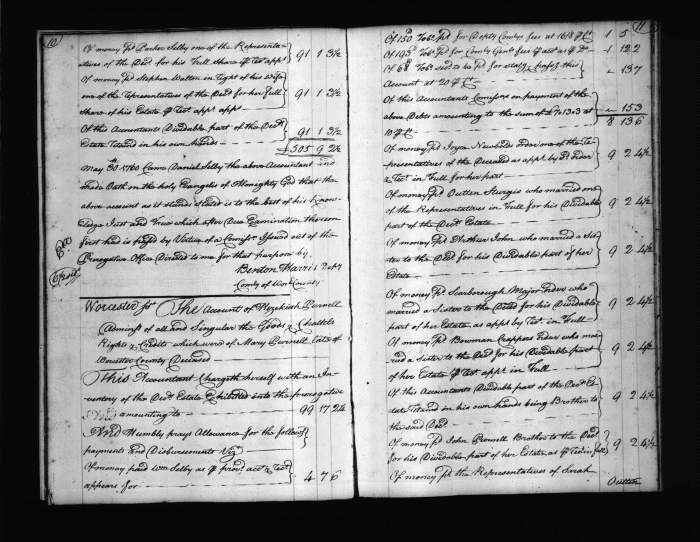 10
Of money pd Parker Selby one of the Representa-
tives of the Decd for his full share pr Test appt } 91 1 3½
Of money pd Stephen Watson in right of his wife
one of the representatives of the Decd for her full
share of his Estate pr Test appt } 91 1 3½
Of this Accountants Dividable part of the Decds
Estate Retaind in his own hands } 91 1 3½
£505 9 2½
May 30th 1760 Came Daniel Selby the above Accountant and
made Oath on the holy Evangelis of Almighty God that the
above account as it stands Stated is to the best of his Know
ledge Just and True which after Due Examination thereon
first had is passed by Virtue of a Comison Issued out of the
Prerogative Office Directed to me for that purpose by
Benton Harris Depy
Comty of Wor County
Worcester Sst The Account of Hezekiah Purnell
Adminr of all and Singular the Goods & Chattels
Rights & Credits which were of Mary Purnell Late of
Worcester County Deceased
This Accountant Chargeth herself with an In-
ventory of the Decds Estate Exhibited into the prerogative
amounting to 99 17 2½
And Humbly prays Allowance for the followg
payments and Disbursements Viz
Of money paid Wm Selby as pr provd acct & Test
appears for 4 7 6
11
Of 150 Tobo pd for Depty Comtys fee at 16/8 pr Ct 1 5
Of 195 Tobo pd for Comty Genls fee pr acct as pr Do 1 12 2
Of 68 Tobo to be pd for stating & passing this
Account at 20 pr Ct 13 7
Of this Accountants Comison on payment of the
above Debts amounting to the sum of £7.13.03 at
10 pr Ct 15 3
8 13 6
Of money pd Newbolds one of the re-
presentatives of the Deceased as appt by
& Test in full for her part } 9 2 4½
Of money pd Outten Sturgis who married one
of the Representatives in full for his Dividable
part of the Decds Estate } 9 2 4½
Of money pd John who married a Sis-
ter to the Decd for his Dividable part of her
Estate } 9 2 4½
Of money pd Scarborough Major who
married a Sister to the Decd for his Dividable
part of her Estate as appt by Test in full } 9 2 4½
Of money pd Bowman who mar-
ried a sister to the Decd for his Dividable part
of her Estate pr Test appt in full } 9 2 4½
Of this Accountants Dividable part of the Decds Es-
tate Retaind in his own hands being Brother to
the said Decd } 9 2 4½
Of money pd John Purnell Brother to the Decd
for his Dividable part of her Estate as pr } 9 2 4½
Of money pd the Representatives of Sarah
Outten